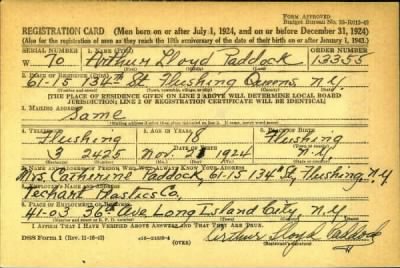 FORM APPROVED
Budget Bureau No. 33-R012-42
REGISTRATION CARD (Men born on or after July 1, 1924, and on or before December 31, 1924)
(Also for the registration of men as they reach the 18th anniversary of the date of their birth on or after January 1, 1943.)
SERIAL NUMBER 1. NAME (Print) ORDER NUMBER
W 70 Arthur Lloyd Paddock 13355
2. PLACE OF RESIDENCE (Print)
61-15 134th St Flushing Queens N.Y.
[THE PLACE OF RESIDENCE GIVEN ON LINE 2 ABOVE WILL DETERMINE LOCAL BOARD
JURISDICTION; LINE 2 OF REGISTRATION CERTIFICATE WILL BE IDENTICAL]
3. MAILING ADDRESS
Same
4. TELEPHONE 5. AGE IN YEARS 6. PLACE OF BIRTH
Flushing 18 Flushing
DATE OF BIRTH
3 2495 Nov. 1924 N.Y.
7. NAME AND ADDRESS OF PERSON WHO WILL ALWAYS KNOW YOUR ADDRESS
Mrs. Catherine Paddock, 61-15 134th St, Flushing, N.Y
8. EMPLOYER'S NAME AND ADDRESS
Techart Plastics Co,
9. PLACE OF EMPLOYMENT OR BUSINESS
41-03 36th Ave Long Island City, N.Y
I AFFIRM THAT I HAVE VERIFIED ABOVE ANSWERS AND THAT THEY ARE TRUE.
DSS Form 1 (Rev. 11-16-42) (OVER) Arthur Lloyd Paddock
(Registrant's signature)